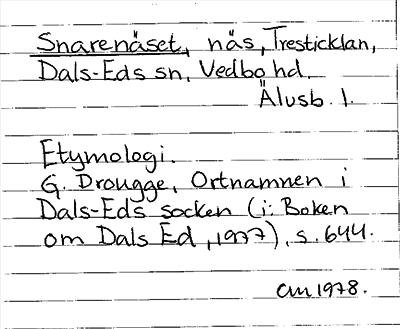 Snarenäset, näs, Tresticklan,
Dals-Eds sn, Vedbo hd.
Älvsb. l.
Etymologi.
G. Drougge, Ortnamnen i
Dals-Eds socken (i: Boken
om Dals Ed, 1977), s. 644.
CM 1978.